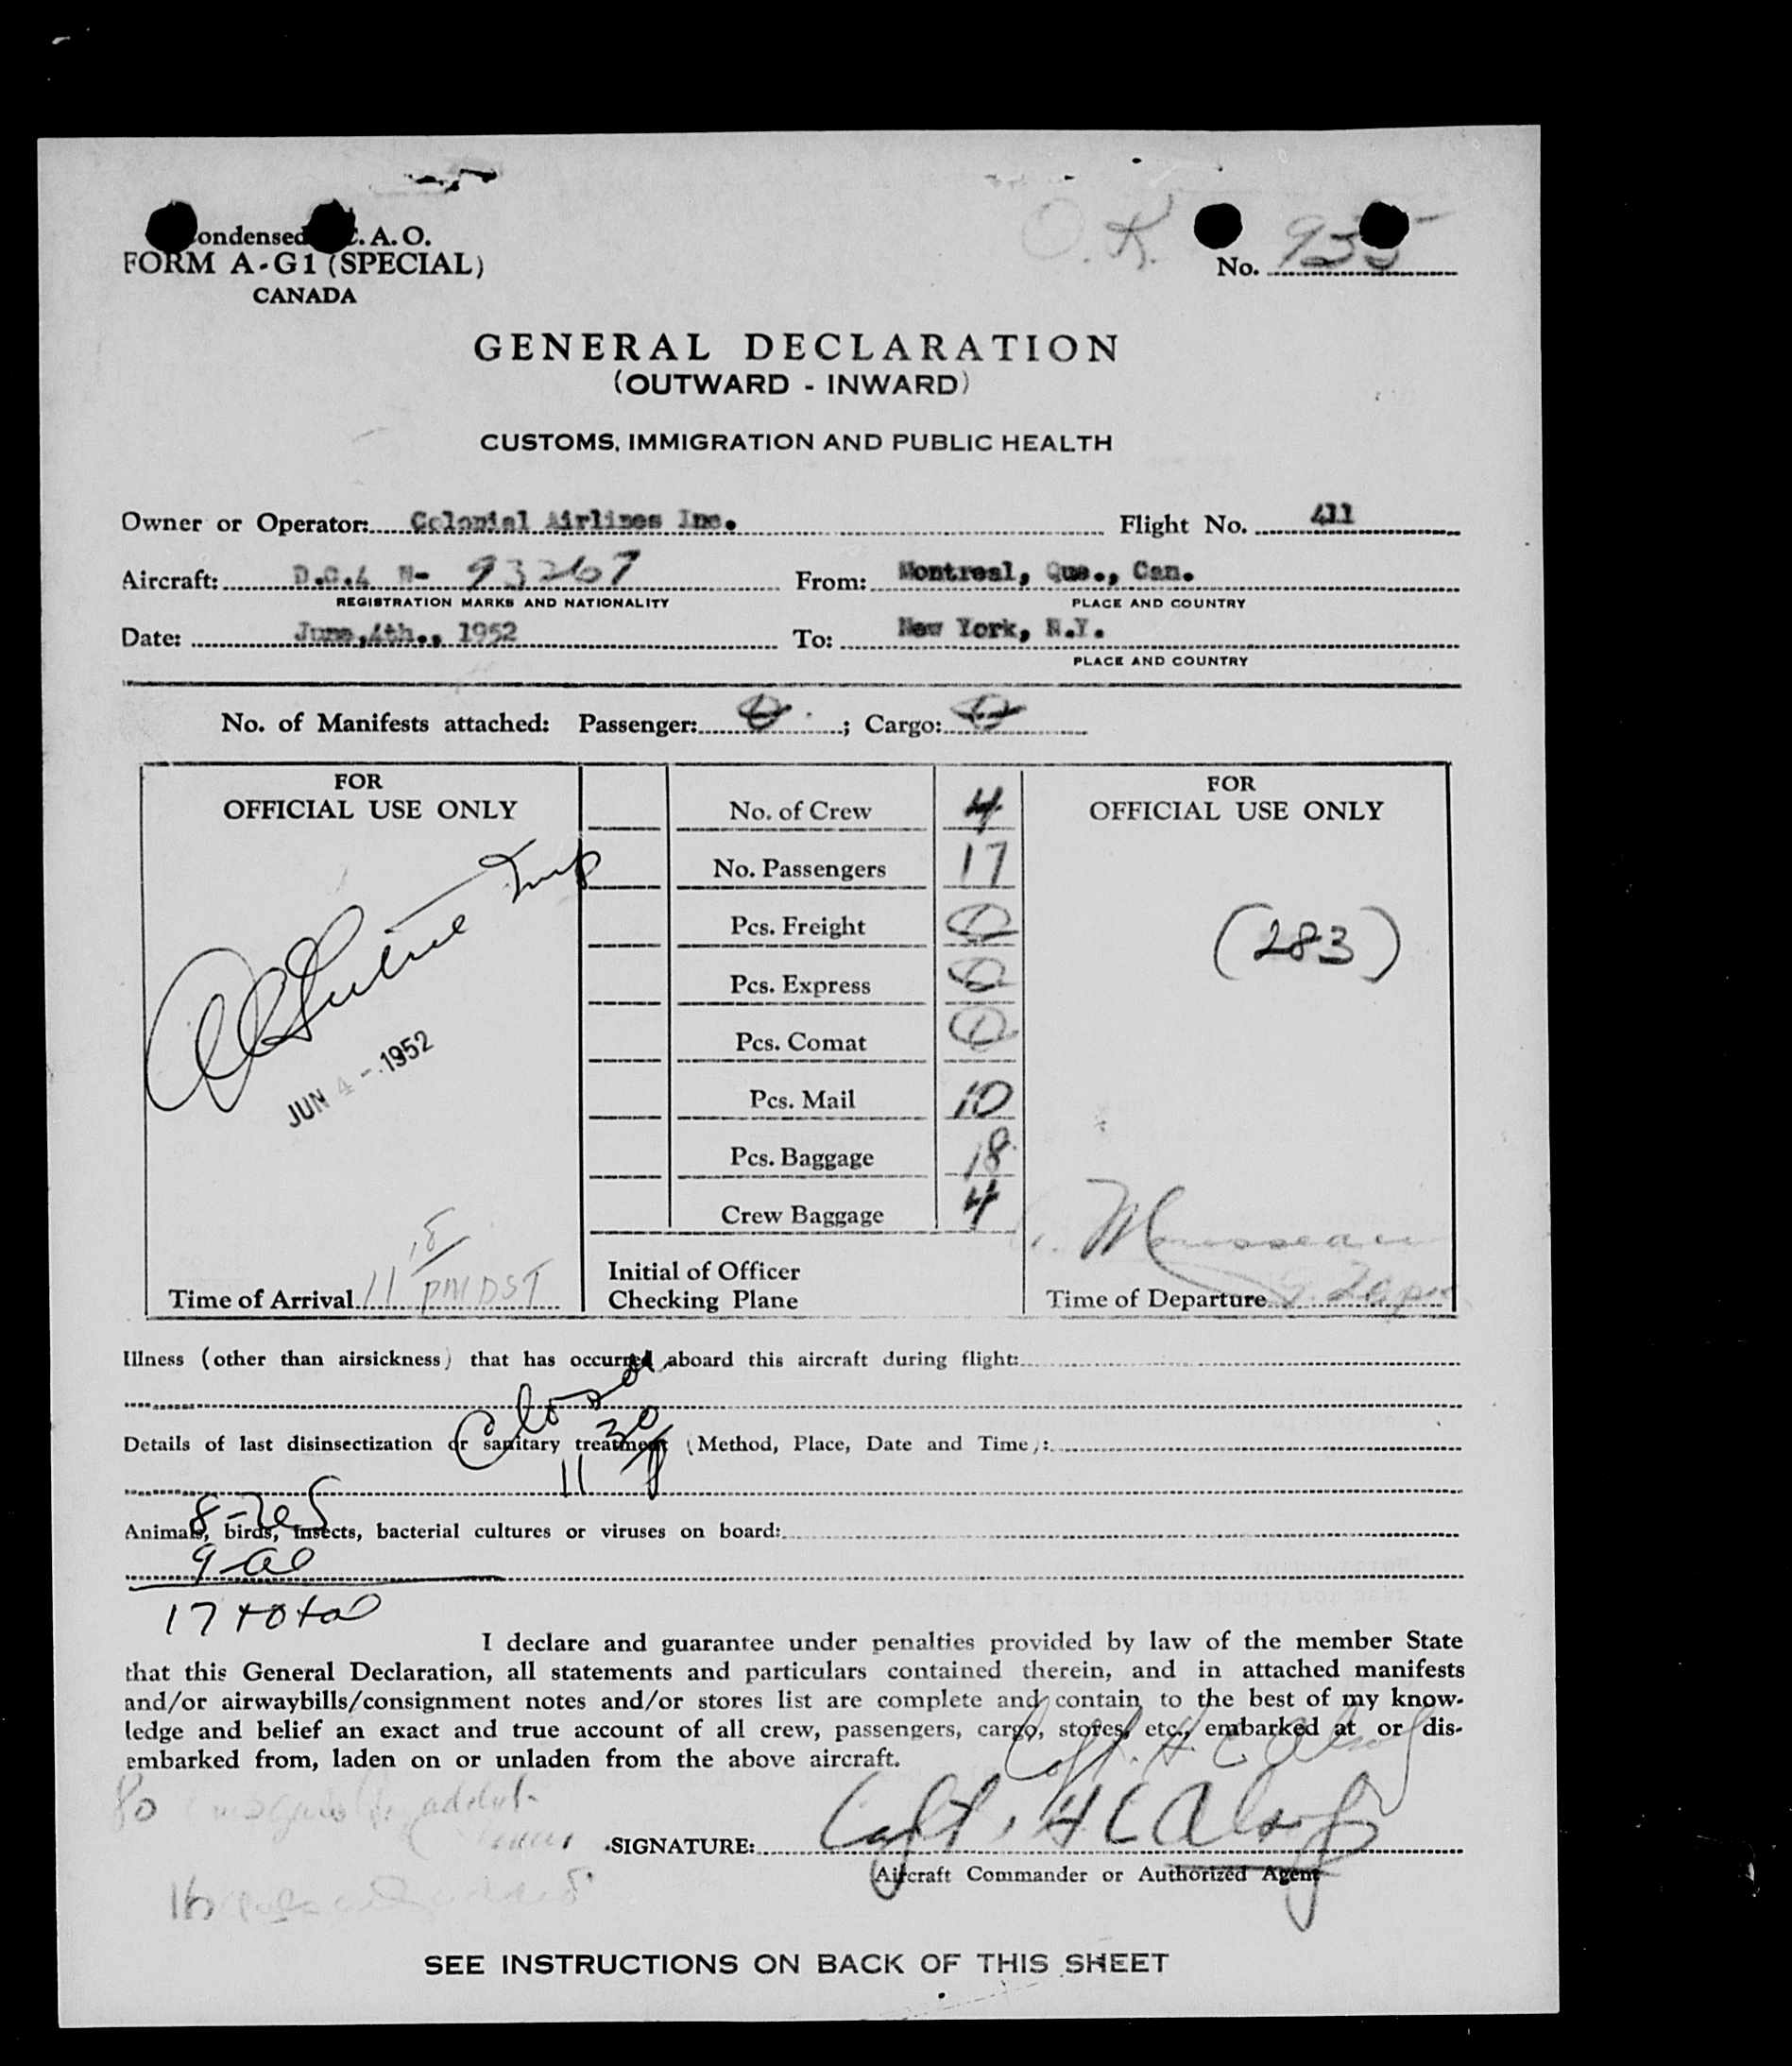 ondensed C. A. O.
FORM A-G1 (SPECIAL)
CANADA
O.K.
No. 935
GENERAL DECLARATION
(OUTWARD - INWARD)
CUSTOMS, IMMIGRATION AND PUBLIC HEALTH
Owner or Operator: Colonial Airlines Inc. Flight No. 411
Aircraft: D.C.4 N- 93267 From: Montreal, Que., Can.
REGISTRATION MARKS AND NATIONALITY PLACE AND COUNTRY
Date: June,4th., 1952 To: New York, N.Y.
PLACE AND COUNTRY
No. of Manifests attached: Passenger: 0 ; Cargo: 0
FOR
OFFICIAL USE ONLY
JUN 4 - 1952
Time of Arrival 11 18 PM DST
No. of Crew 4
No. Passengers 17
Pcs. Freight 0
Pcs. Express 0
Pcs. Comat 0
Pcs. Mail 10
Pcs. Baggage 18
Crew Baggage 4
Initial of Officer
Checking Plane
FOR
OFFICIAL USE ONLY
(283)
Time of Departure
Illness (other than airsickness) that has occurred aboard this aircraft during flight:
Closed
Details of last disinsectization or sanitary treatment (Method, Place, Date and Time):
11 30 P
8-
Animals, birds, insects, bacterial cultures or viruses on board:
9-al
17 total
I declare and guarantee under penalties provided by law of the member State
that this General Declaration, all statements and particulars contained therein, and in attached manifests
and/or airwaybills/consignment notes and/or stores list are complete and contain to the best of my know-
ledge and belief an exact and true account of all crew, passengers, cargo, stores, etc., embarked at or dis-
embarked from, laden on or unladen from the above aircraft.
Capt. H C Alsop
SIGNATURE: Capt. H C Alsop
(Aircraft Commander or Authorized Agent
SEE INSTRUCTIONS ON BACK OF THIS SHEET